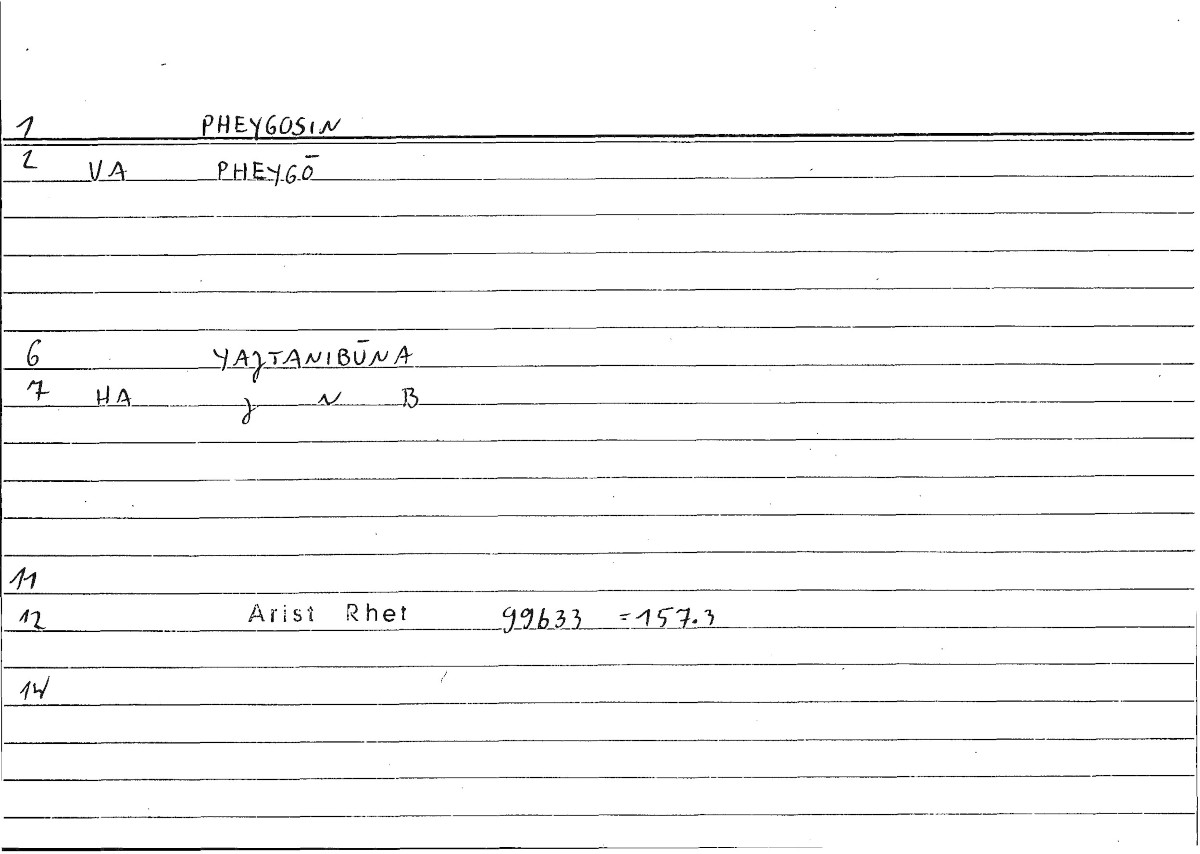 1 PHEYGOSIN
2 VA PHEYGŌ
6 YAȝTANIBŪNA
7 HA ȝ N B
11
12 Arist Rhet 99b33 =157.3
14